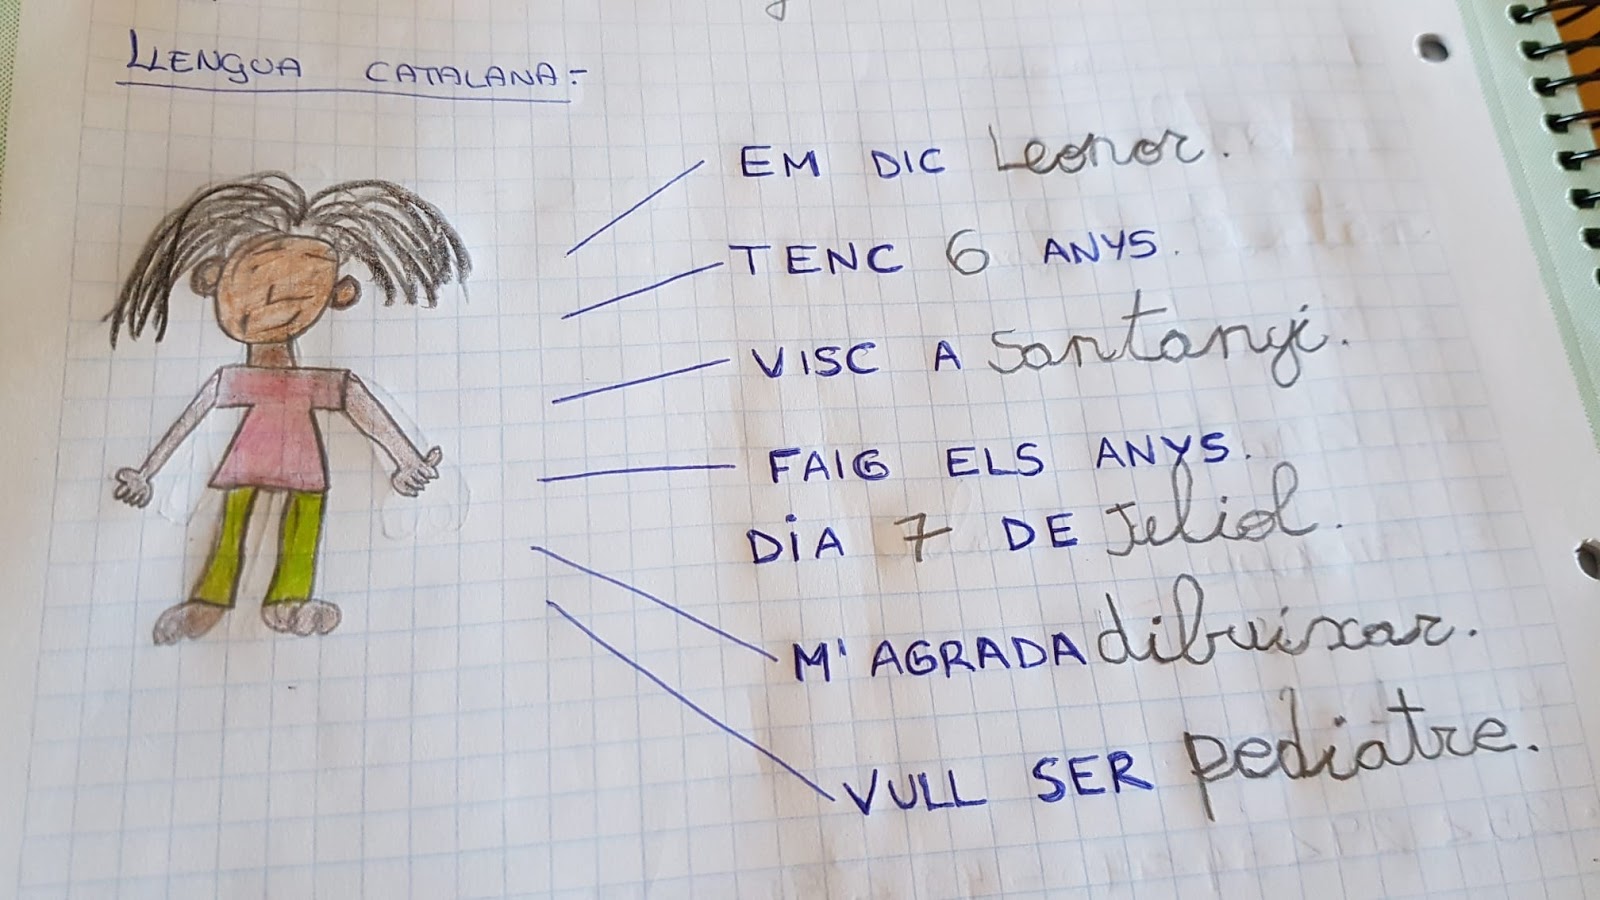 LLENGUA CATALANA:-
EM DIC Leonor.
TENC 6 ANYS.
VISC A Santanyi.
FAIG ELS ANYS.
DIA 7 DE Juliol.
M'AGRADA dibuixar.
VULL SER pediatre.